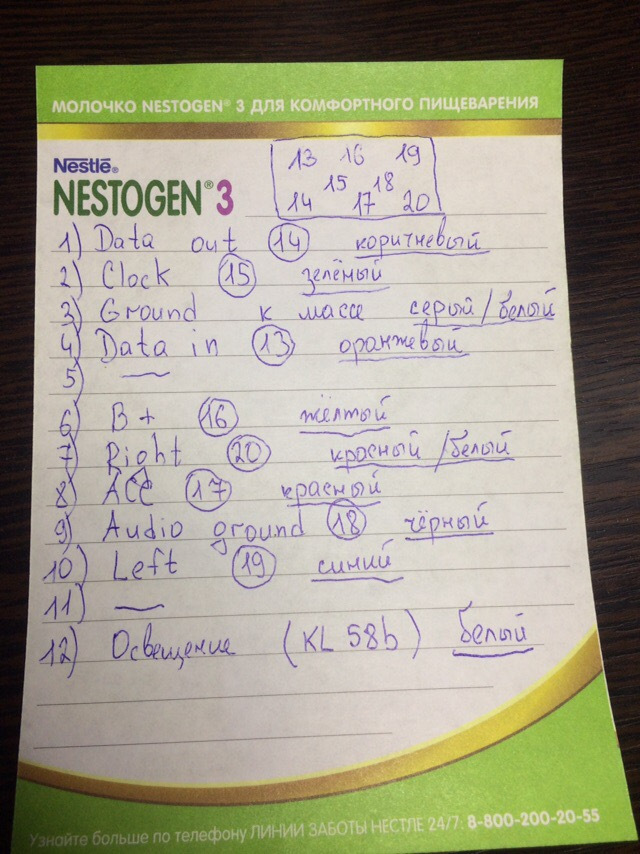 МОЛОЧКО NESTOGEN® 3 ДЛЯ КОМФОРТНОГО ПИЩЕВАРЕНИЯ
Nestlé®
NESTOGEN® 3
13 16 19
15 18
14 17 20
1) Data out 14 коричневый
2) Clock 15 зелёный
3) Ground к массе серый/белый
4) Data in 13 оранжевый
5) —
6) B+ 16 жёлтый
7) Right 20 красный/белый
8) ACC 17 красный
9) Audio ground 18 чёрный
10) Left 19 синий
11) —
12) Освещение (KL 58b) белый
Узнайте больше по телефону ЛИНИИ ЗАБОТЫ НЕСТЛЕ 24/7: 8-800-200-20-55